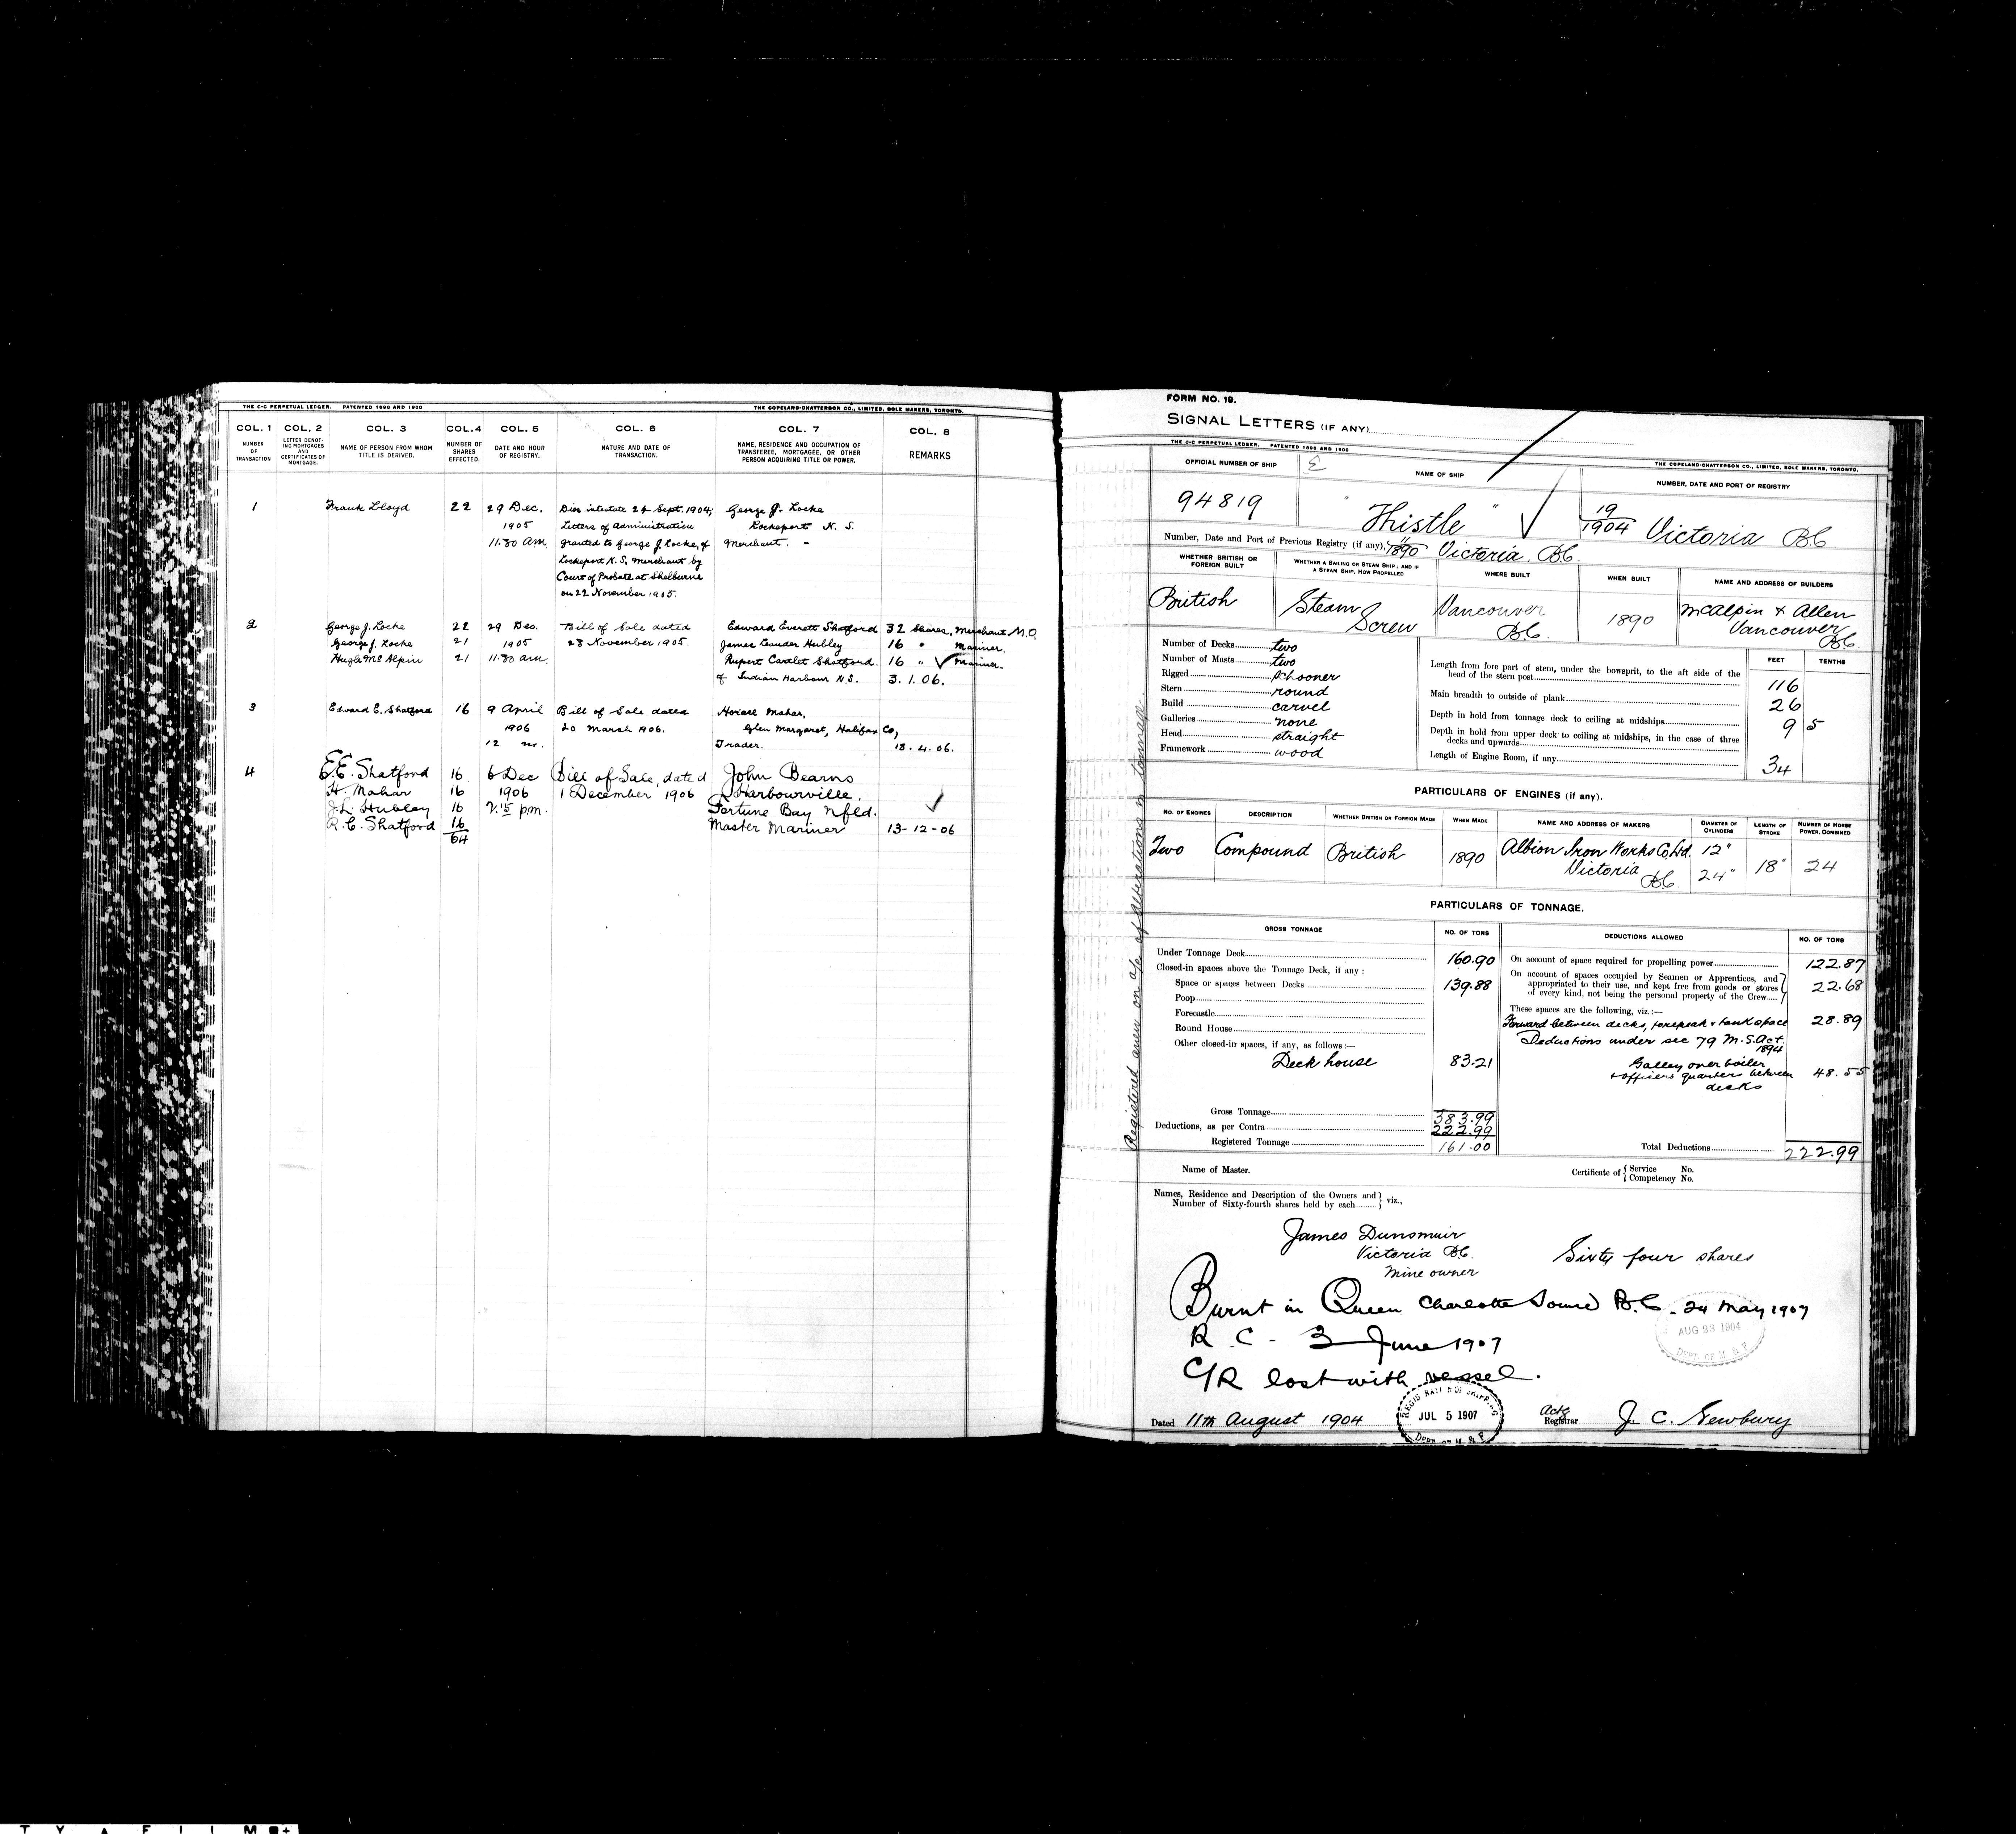 THE C-C PERPETUAL LEDGER. PATENTED 1896 AND 1900 THE COPELAND-CHATTERSON CO., LIMITED, SOLE MAKERS, TORONTO.
COL. 1 COL. 2 COL. 3 COL. 4 COL. 5 COL. 6 COL. 7 COL. 8
NUMBER OF TRANSACTION
LETTER DENOTING MORTGAGES AND CERTIFICATES OF MORTGAGE.
NAME OF PERSON FROM WHOM TITLE IS DERIVED.
NUMBER OF SHARES EFFECTED.
DATE AND HOUR OF REGISTRY.
NATURE AND DATE OF TRANSACTION.
NAME, RESIDENCE AND OCCUPATION OF TRANSFEREE, MORTGAGEE, OR OTHER PERSON ACQUIRING TITLE OR POWER.
REMARKS
1 Frank Lloyd 22 29 Dec. Dies intestate 24 Sept. 1904; George J. Locke
1905 Letters of Administration Lockeport N. S.
11.30 am. granted to George J. Locke, of Merchant. -
Lockeport N.S, Merchant by
Court of Probate at Shelburne
on 22 November 1905.
2 George J. Locke 22 29 Dec. Bill of Sale dated Edward Everett Shatford 32 Shares, Merchant M.O.
George J. Locke 21 1905 28 November 1905. James Leander Hubley 16 " Mariner.
Hugh McAlpin 21 11.30 am. Rupert Shatford. 16 " Mariner.
of Indian Harbour N.S. 3.1.06.
3 Edward E. Shatford 16 9 April Bill of Sale dated Horace Mahar,
1906 20 March 1906. Glen Margaret, Halifax Co,
12 m. Trader. 18.4.06.
4 E.E. Shatford 16 6 Dec Bill of Sale, dated John Bearns
H. Mahar 16 1906 1 December 1906 Harbourville,
J.L. Hubley 16 2.15 p.m. Fortune Bay Nfld.
R.C. Shatford 16 Master Mariner 13-12-06
64
FORM NO. 19.
SIGNAL LETTERS (IF ANY)
THE C-C PERPETUAL LEDGER. PATENTED 1896 AND 1900 THE COPELAND-CHATTERSON CO., LIMITED, SOLE MAKERS, TORONTO.
OFFICIAL NUMBER OF SHIP NAME OF SHIP NUMBER, DATE AND PORT OF REGISTRY
94819 "Thistle" 19/1904 Victoria BC
Number, Date and Port of Previous Registry (if any), 11/1890 Victoria. BC.
WHETHER BRITISH OR FOREIGN BUILT
WHETHER A SAILING OR STEAM SHIP; AND IF A STEAM SHIP, HOW PROPELLED
WHERE BUILT WHEN BUILT NAME AND ADDRESS OF BUILDERS
British Steam Screw Vancouver BC. 1890 McAlpin & Allen Vancouver BC.
Number of Decks two
Number of Masts two
Rigged schooner
Stern round
Build carvel
Galleries none
Head straight
Framework wood
FEET TENTHS
Length from fore part of stem, under the bowsprit, to the aft side of the head of the stern post 116
Main breadth to outside of plank 26
Depth in hold from tonnage deck to ceiling at midships 9 5
Depth in hold from upper deck to ceiling at midships, in the case of three decks and upwards
Length of Engine Room, if any 34
PARTICULARS OF ENGINES (if any).
NO. OF ENGINES DESCRIPTION WHETHER BRITISH OR FOREIGN MADE WHEN MADE NAME AND ADDRESS OF MAKERS DIAMETER OF CYLINDERS LENGTH OF STROKE NUMBER OF HORSE POWER, COMBINED
Two Compound British 1890 Albion Iron Works Co, Ltd. 12" 18" 24
Victoria BC. 24"
PARTICULARS OF TONNAGE.
GROSS TONNAGE NO. OF TONS DEDUCTIONS ALLOWED NO. OF TONS
Under Tonnage Deck 160.90
Closed-in spaces above the Tonnage Deck, if any:
Space or spaces between Decks 139.88
Poop
Forecastle
Round House
Other closed-in spaces, if any, as follows:—
Deck house 83.21
Gross Tonnage 383.99
Deductions, as per Contra 222.99
Registered Tonnage 161.00
On account of space required for propelling power 122.87
On account of spaces occupied by Seamen or Apprentices, and
appropriated to their use, and kept free from goods or stores
of every kind, not being the personal property of the Crew 22.68
These spaces are the following, viz.:—
Forward between decks, forepeak & tank space 28.89
Deductions under sec 79 M.S. Act. 1894
Galley over boiler
+ officers quarters between decks 48.55
Total Deductions 222.99
Registered anew on a/c of alterations in tonnage.
Name of Master. Certificate of { Service No.
Competency No.
Names, Residence and Description of the Owners and
Number of Sixty-fourth shares held by each } viz.,
James Dunsmuir
Victoria BC. Sixty four shares
Mine owner
Burnt in Queen Charlotte Sound B.C. 24 May 1907
AUG 23 1904
DEPT. OF M & F
R. C. - 3 June 1907
C/R lost with vessel.
Dated 11th August 1904
JUL 5 1907
DEPT. OF M & F
Actg Registrar J. C. Newbury